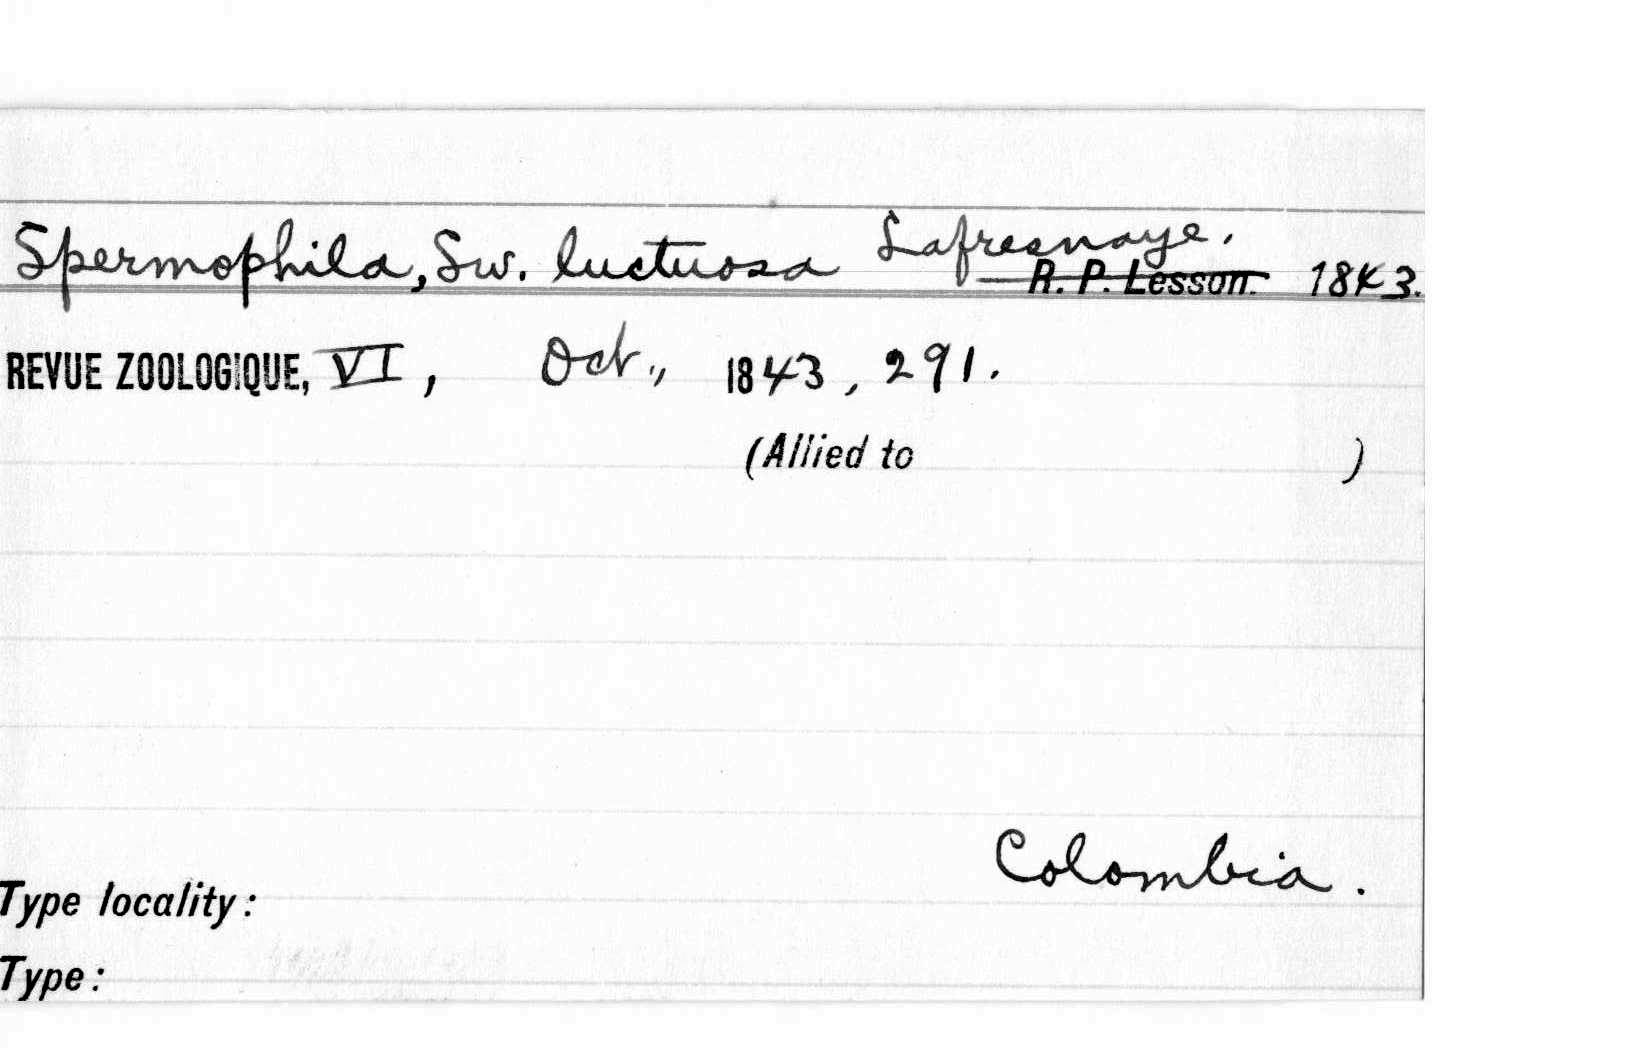 Spermophila, Sw. luctuosa Lafresnaye.
R. P. Lesson. 1843.
REVUE ZOOLOGIQUE, VI, Oct., 1843, 291.
(Allied to )
Colombia.
Type locality:
Type: